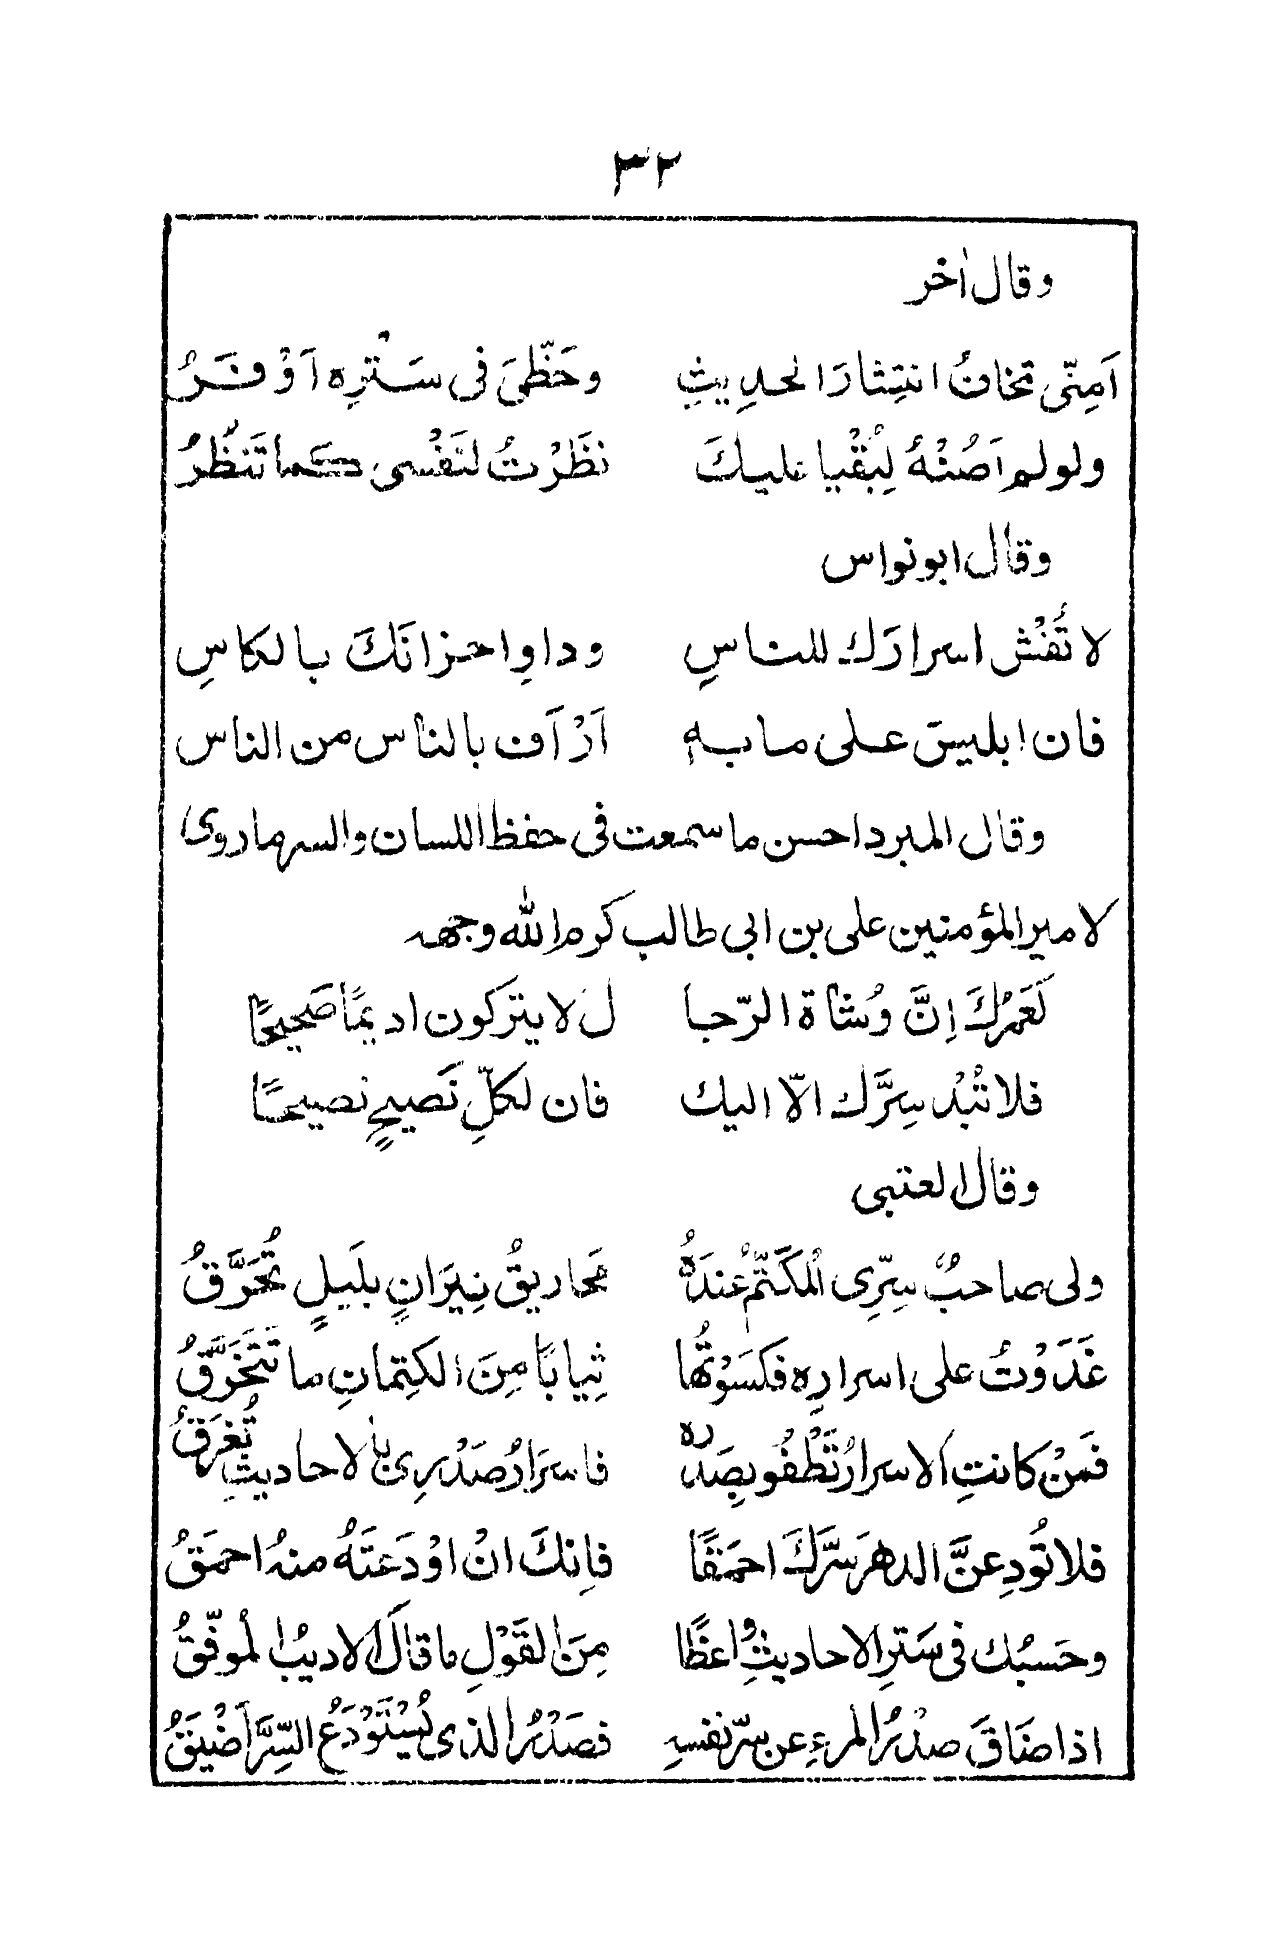 ٣٢
وقال اٰخر
اَمِنّى تخافُ انتِشارَ الحدِيثِ وحَظِّىَ فى سَتْرِه اَوْفَرُ
ولو لم اَصُنْهُ لِبُقْيا عليكَ نظَرْتُ لنَفْسى كما تَنظُرُ
وقال ابو نواس
لا تُفْشِ اسرارَك للناسِ وداوِ احزانَكَ بالكاسِ
فان ابليسَ على ما به اَرْاَف بالناس من الناس
وقال المبرد احسن ما سمعت فى حفظ اللسان والسر ما روى
لامير المؤمنين على بن ابى طالب كرم الله وجهه
لَعَمْرُكَ اِنَّ وُشاةَ الرّجا لِ لا يتركون اديمًا صَحيحًا
فلا تُبْدِ سِرَّك الّا اليك فان لكلِّ نَصيحٍ نصيحًا
وقال العتبى
ولى صاحبٌ سِرِّى المُكَتَّمُ عندَهُ مَحاريقُ نِيَرانٍ بلَيلٍ تُحَرَّقُ
غَدَوْتُ على اسرارِه فكسَوْتُها ثِيابًا مِنَ الكتِمانِ ما تَتَخَرَّقُ
فَمَنْ كانتِ الاسرارُ تَطْفُو بصَدْرِه فاسرَارُ صَدْرِى بالاحاديثِ تُغرَقُ
فلا تُودِعنَّ الدهرَ سَرَّكَ احمَقًا فاِنكَ انْ اوْدَعتَهُ منهُ احمَقُ
وحَسبُك فى سَترِ الاحاديثِ واعظًا مِنَ القَوْلِ ما قالَ الاديبُ الموفّقُ
اذا ضَاقَ صدْرُ المرءِ عن سرّ نفسهِ فصَدْرُ الذى يُسْتَوْدَعُ السِّرَّ اَضْيَقُ